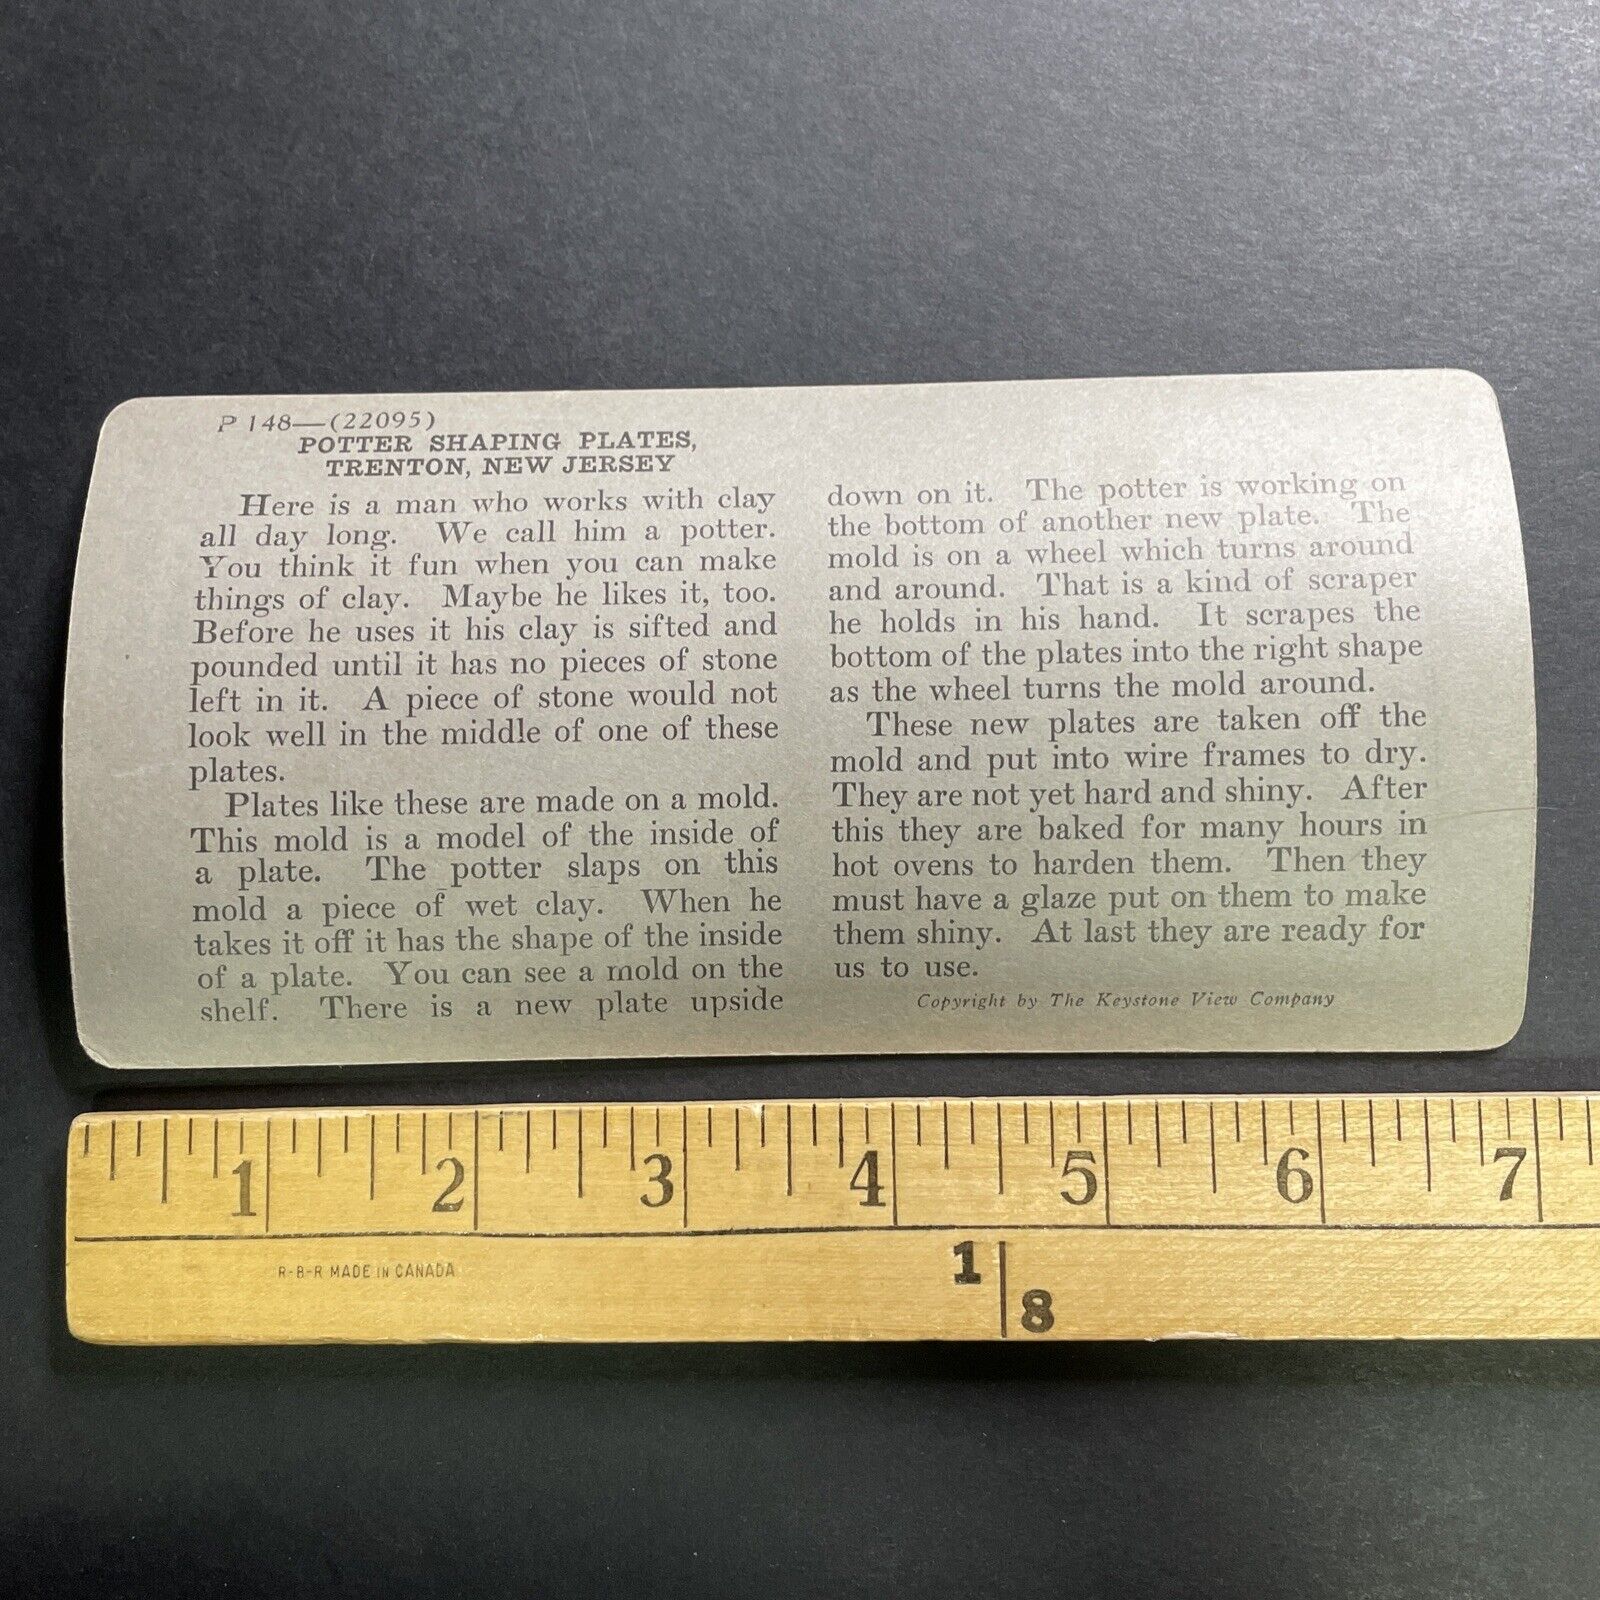 P 148—(22095)
POTTER SHAPING PLATES,
TRENTON, NEW JERSEY
Here is a man who works with clay
all day long. We call him a potter.
You think it fun when you can make
things of clay. Maybe he likes it, too.
Before he uses it his clay is sifted and
pounded until it has no pieces of stone
left in it. A piece of stone would not
look well in the middle of one of these
plates.
Plates like these are made on a mold.
This mold is a model of the inside of
a plate. The potter slaps on this
mold a piece of wet clay. When he
takes it off it has the shape of the inside
of a plate. You can see a mold on the
shelf. There is a new plate upside
down on it. The potter is working on
the bottom of another new plate. The
mold is on a wheel which turns around
and around. That is a kind of scraper
he holds in his hand. It scrapes the
bottom of the plates into the right shape
as the wheel turns the mold around.
These new plates are taken off the
mold and put into wire frames to dry.
They are not yet hard and shiny. After
this they are baked for many hours in
hot ovens to harden them. Then they
must have a glaze put on them to make
them shiny. At last they are ready for
us to use.
Copyright by The Keystone View Company
1 2 3 4 5 6 7
R-B-R MADE IN CANADA
1
8